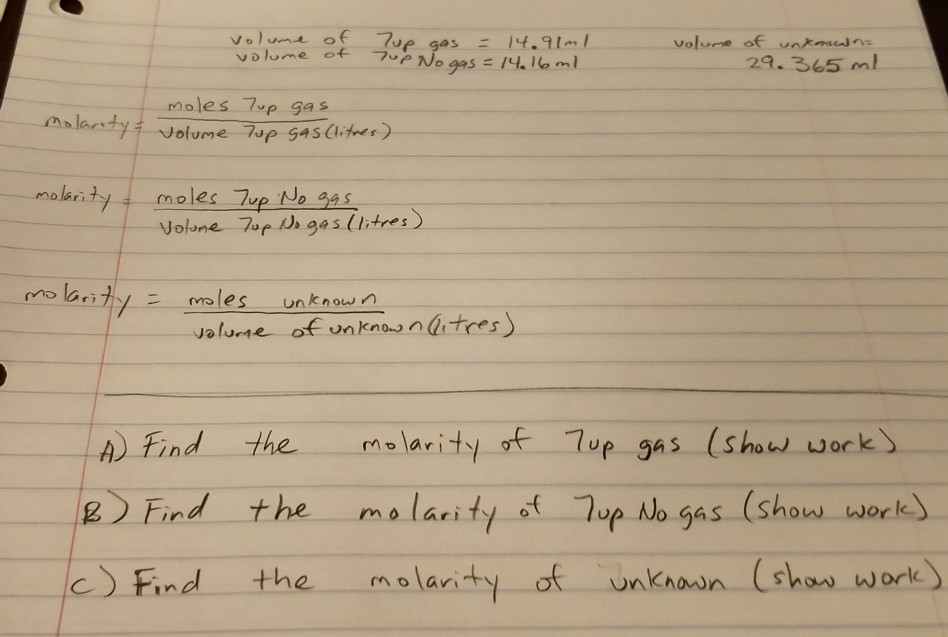 volume of 7up gas = 14.91ml
volume of 7up No gas = 14.16ml
volume of unknown=
29.365 ml
molarity = moles 7up gas
volume 7up gas (litres)
molarity = moles 7up No gas
volume 7up No gas (litres)
molarity = moles unknown
volume of unknown (litres)
A) Find the molarity of 7up gas (show work)
B) Find the molarity of 7up No gas (show work)
C) Find the molarity of unknown (show work)